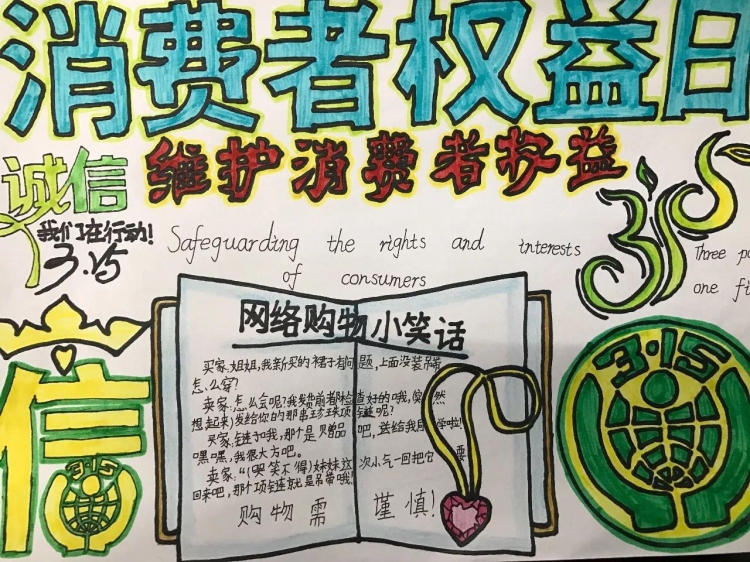 消费者权益日
维护消费者权益
诚信
我们在行动!
3.15
315
Safeguarding the rights and interests
of consumers
Three po
one fi
网络购物小笑话
买家:姐姐,我新买的裙子有问题,上面没装吊带
怎么穿?
卖家:怎么会呢?我发货前都检查好的哦,(突然
想起来)发给你的那串珍珠项链呢?
买家:链子哦,那个是赠品吧,送给我同学啦!
嘿嘿,我很大方吧。
卖家:"(哭笑不得)妹妹这次小气一回把它要
回来吧,那个项链就是吊带哦!
购物需谨慎!
信
3·15
3·15